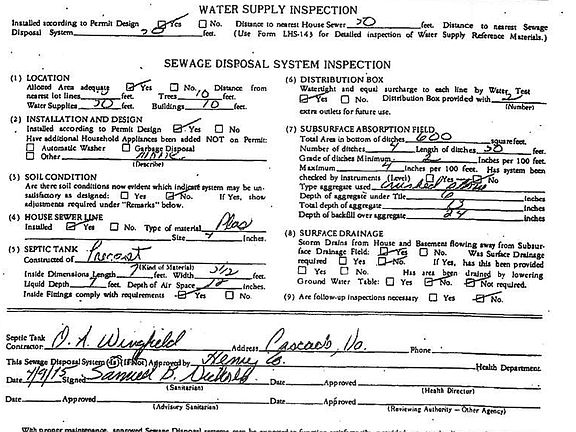 WATER SUPPLY INSPECTION
Installed according to Permit Design ☑ Yes ☐ No. Distance to nearest House Sewer 50 feet. Distance to nearest Sewage
Disposal System feet. (Use Form LHS-143 for Detailed inspection of Water Supply Reference Materials.)
SEWAGE DISPOSAL SYSTEM INSPECTION
(1) LOCATION
Alloted Area adequate ☑ Yes ☐ No. Distance from
nearest lot lines, feet. Trees 10 feet.
Water Supplies 50 feet. Buildings 10 feet.
(2) INSTALLATION AND DESIGN
Installed according to Permit Design ☑ Yes ☐ No
Have additional Household Appliances been added NOT on Permit:
☐ Automatic Washer ☐ Garbage Disposal
☐ Other None
(Describe)
(3) SOIL CONDITION
Are there soil conditions now evident which indicate system may be un-
satisfactory as designed: ☐ Yes ☑ No. If Yes, show
adjustments required under "Remarks" below.
(4) HOUSE SEWER LINE
Installed ☑ Yes ☐ No. Type of material Plas
Size 4 Inches.
(5) SEPTIC TANK
Constructed of Precast
(Kind of Material)
Inside Dimensions Length 7 feet. Width 3 1/2
Liquid Depth 4 feet. Depth of Air Space inches.
Inside Fittings comply with requirements ☑ Yes ☐ No.
(6) DISTRIBUTION BOX
Watertight and equal surcharge to each line by Water Test
☑ Yes ☐ No. Distribution Box provided with 2
(Number)
extra outlets for future use.
(7) SUBSURFACE ABSORPTION FIELD
Total Area in bottom of ditches 600 square feet.
Number of ditches 4 Length of ditches 50 feet.
Grade of ditches Minimum 2 Inches per 100 feet.
Maximum 4 Inches per 100 feet. Has system been
checked by instruments (Level) ☐ Yes ☑ No
Type aggregate used Crushed Stone
Depth of aggregate under Tile 6 Inches
Total depth of aggregate 13 Inches
Depth of backfill over aggregate 24 Inches
(8) SURFACE DRAINAGE
Storm Drains from House and Basement flowing away from Subsur-
face Drainage Field: ☑ Yes ☐ No. Was Surface Drainage
required ☐ Yes ☑ No. If Yes, has this been provided
☐ Yes ☐ No. Has area been drained by lowering
Ground Water Table: ☐ Yes ☑ No. ☑ Not required.
(9) Are follow-up inspections necessary ☐ Yes ☑ No.
Septic Tank
Contractor O. A. Wingfield Address Cascade, Va. Phone
This Sewage Disposal System (is) (IS Not) Approved by Henry Co. Health Department
Date 4/9/75 Signed Samuel B. Date Approved
(Sanitarian) (Health Director)
Date Date Approved
(Advisory Sanitarian) (Reviewing Authority — Other Agency)
With proper maintenance, approved Sewage Disposal systems may be expected to function satisfactorily